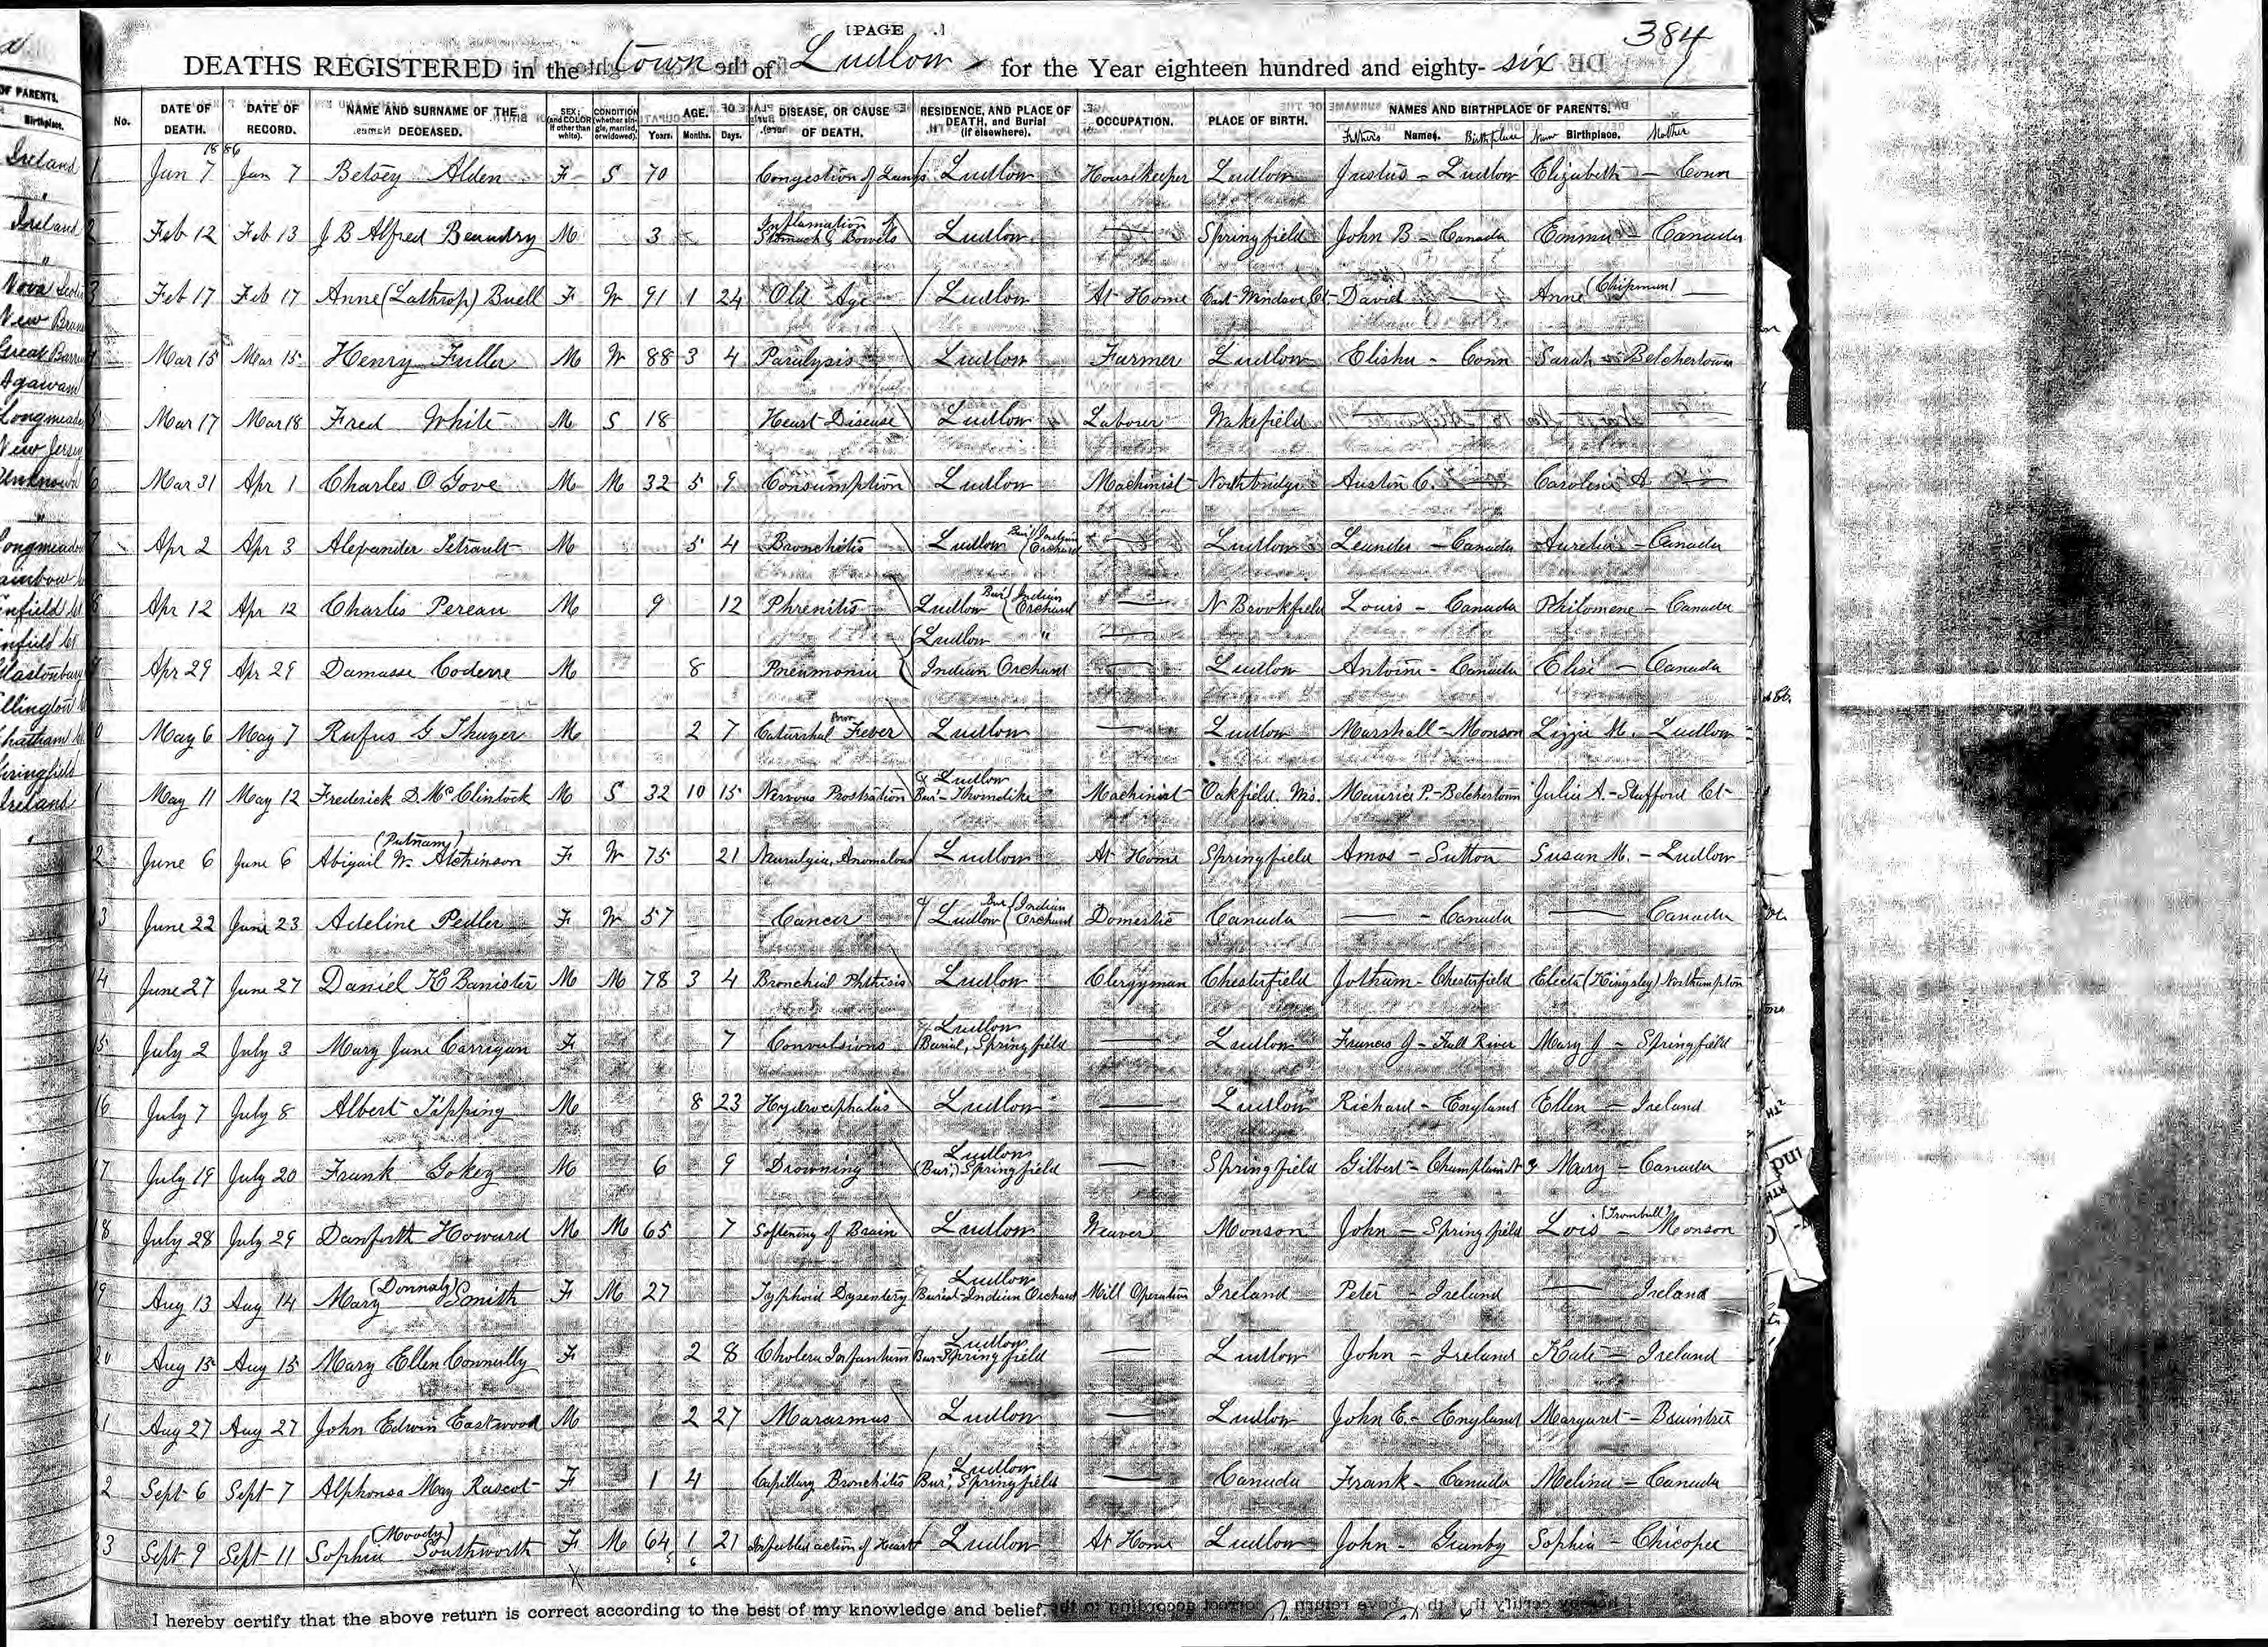 [PAGE .]
384
DEATHS REGISTERED in the town of Ludlow for the Year eighteen hundred and eighty-six
No. DATE OF DEATH. DATE OF RECORD. NAME AND SURNAME OF THE DECEASED. SEX (and COLOR if other than white). CONDITION (whether single, married, or widowed). AGE. Years. Months. Days. DISEASE, OR CAUSE OF DEATH. RESIDENCE, AND PLACE OF DEATH, and Burial (if elsewhere). OCCUPATION. PLACE OF BIRTH. NAMES AND BIRTHPLACE OF PARENTS. Fathers Names. Birthplace Name Birthplace. Mother
1886
1 Jan 7 Jan 7 Betsey Alden F S 70 Congestion of Lungs Ludlow Housekeeper Ludlow Justus - Ludlow Elizabeth - Conn
2 Feb 12 Feb 13 J B Alfred Beaudry M 3 Inflamation of Stomach & Bowels Ludlow — Springfield John B - Canada Emma - Canada
3 Feb 17 Feb 17 Anne (Lathrop) Buell F W 91 1 24 Old Age Ludlow At Home East Windsor Ct - David — Anne (Chipman) —
4 Mar 15 Mar 15 Henry Fuller M W 88 3 4 Paralysis Ludlow Farmer Ludlow Elisha - Conn Sarah - Belchertown
5 Mar 17 Mar 18 Fred White M S 18 Heart Disease Ludlow Laborer Wakefield — —
6 Mar 31 Apr 1 Charles O Gove M M 32 5 9 Consumption Ludlow Machinist Northbridge Austin C. — Caroline A —
7 Apr 2 Apr 3 Alexander Tetrault M 5 4 Bronchitis Ludlow Bur (Indian Orchard — Ludlow Leander - Canada Aurelia - Canada
8 Apr 12 Apr 12 Charles Pereau M 9 12 Phrenitis Ludlow Bur (Indian Orchard — N Brookfield Louis - Canada Philomene - Canada
(Ludlow " —
9 Apr 29 Apr 29 Damasse Coderre M 8 Pneumonia (Indian Orchard — Ludlow Antoine - Canada Elise - Canada
10 May 6 May 7 Rufus G Thayer M 2 7 Catarrhal Fever Ludlow — Ludlow Marshall - Monson Lizzie M. Ludlow
11 May 11 May 12 Frederick D. McClintock M S 32 10 15 Nervous Prostration Ludlow Bur - Thorndike Machinist Oakfield. Maurice P. - Belchertown Julia A. - Stafford Ct
12 June 6 June 6 Abigail W. (Putnam) Atchinson F W 75 21 Neuralgia, Anomalous Ludlow At Home Springfield Amos - Sutton Susan M. - Ludlow
13 June 22 June 23 Adeline Pedler F W 57 Cancer Ludlow Bur (Indian Orchard Domestic Canada — - Canada — Canada
14 June 27 June 27 Daniel K Banister M M 78 3 4 Bronchial Phthisis Ludlow Clergyman Chesterfield Jotham - Chesterfield Electa (Kingsley) Northampton
15 July 2 July 3 Mary Jane Carrigan F 7 Convulsions Ludlow (Burial, Springfield — Ludlow Francis J - Fall River Mary J - Springfield
16 July 7 July 8 Albert Tipping M 8 23 Hydrocephalus Ludlow — Ludlow Richard - England Ellen - Ireland
17 July 19 July 20 Frank Gokey M 6 9 Drowning Ludlow (Bur.) Springfield — Springfield Gilbert - Champlain N Y Mary - Canada
18 July 28 July 29 Danforth Howard M M 65 7 Softening of Brain Ludlow Weaver Monson John - Springfield Lois (Trumbull) - Monson
19 Aug 13 Aug 14 Mary (Donnaly) Smith F M 27 Typhoid Dysentery Ludlow Burial - Indian Orchard Mill Operative Ireland Peter - Ireland — Ireland
20 Aug 15 Aug 15 Mary Ellen Connelly F 2 8 Cholera Infantum Ludlow Bur Springfield — Ludlow John - Ireland Kate - Ireland
21 Aug 27 Aug 27 John Edwin Eastwood M 2 27 Marasmus Ludlow — Ludlow John E. - England Margaret - Braintree
22 Sept 6 Sept 7 Alphonsa May Rascot F 1 4 Capillary Bronchitis Ludlow Bur, Springfield — Canada Frank - Canada Melina - Canada
23 Sept 9 Sept 11 Sophia (Moody) Southworth F M 64 1 21 Enfeebled action of Heart Ludlow At Home Ludlow John - Granby Sophia - Chicopee
I hereby certify that the above return is correct according to the best of my knowledge and belief.
OF PARENTS.
Birthplace.
Ireland
"
Ireland
"
Nova Scotia
New Brun
Great Barr
Agawam
Longmeado
New Jersey
Unknown
"
Longmeadow
Enfield Ct
Enfield Ct
Glastonbury
Ellington
Chatham
Springfield
Ireland
"